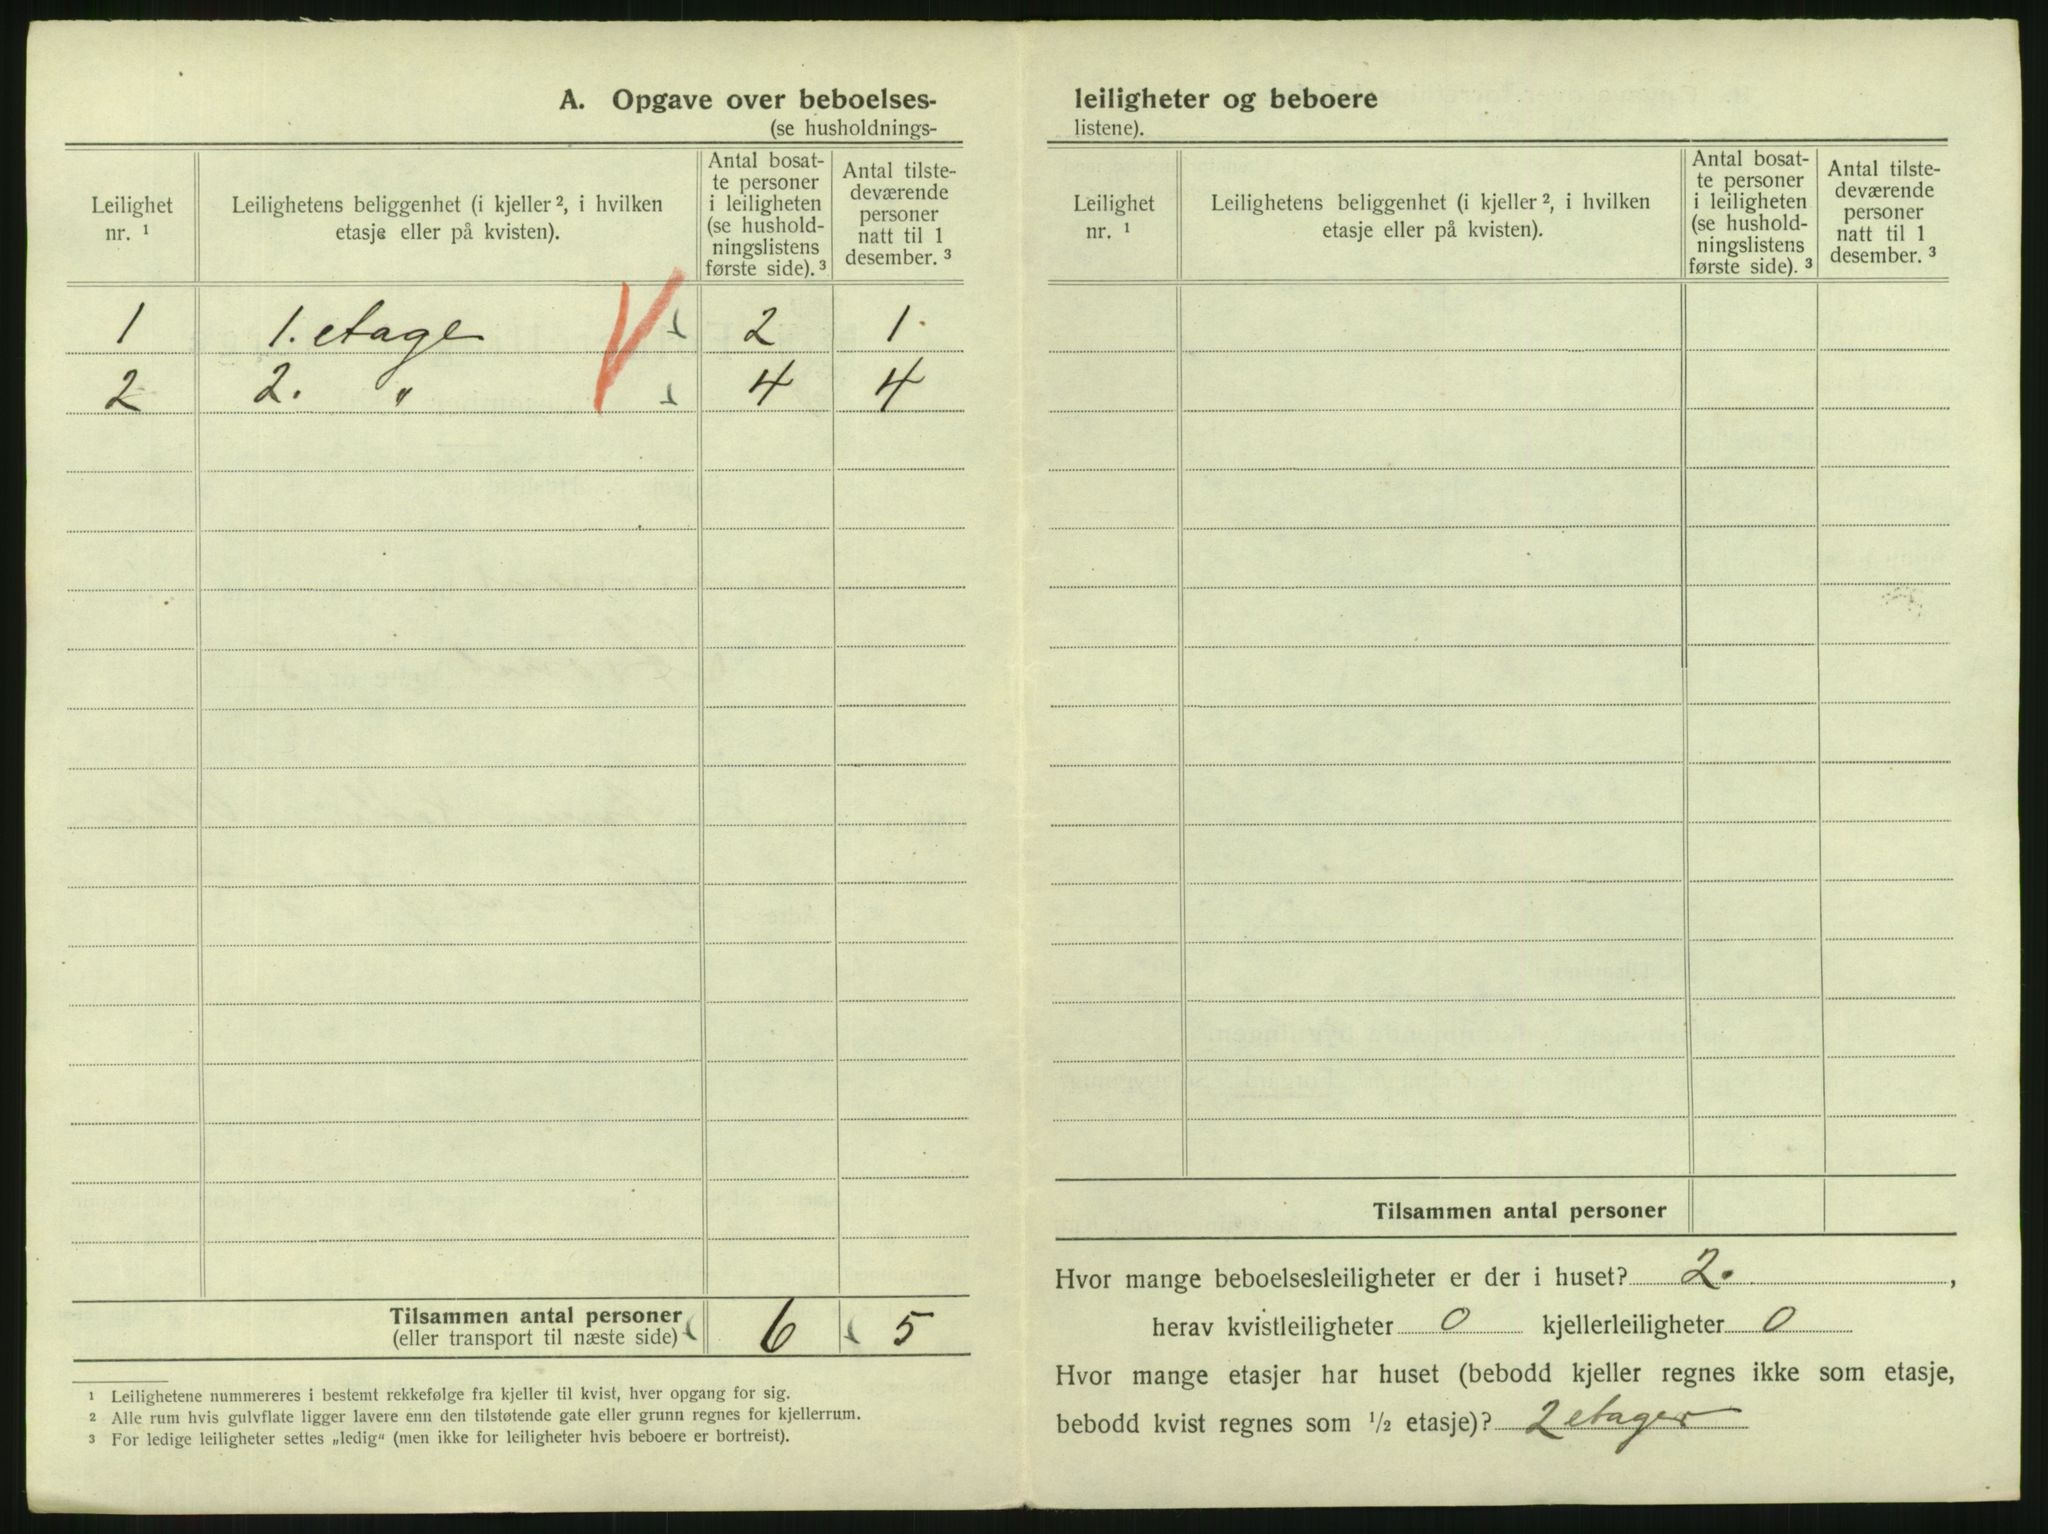 A. Opgave over beboelses-
(se husholdnings-
Leilighet
nr. ¹
Leilighetens beliggenhet (i kjeller ², i hvilken
etasje eller på kvisten).
Antal bosat-
te personer
i leiligheten
(se hushold-
ningslistens
første side). ³
Antal tilste-
deværende
personer
natt til 1
desember. ³
1 1. etage 2 1.
2 2. " 4 4
Tilsammen antal personer
(eller transport til næste side) 6 5
¹ Leilighetene nummereres i bestemt rekkefølge fra kjeller til kvist, hver opgang for sig.
² Alle rum hvis gulvflate ligger lavere enn den tilstøtende gate eller grunn regnes for kjellerrum.
³ For ledige leiligheter settes „ledig“ (men ikke for leiligheter hvis beboere er bortreist).
leiligheter og beboere
listene).
Leilighet
nr. ¹
Leilighetens beliggenhet (i kjeller ², i hvilken
etasje eller på kvisten).
Antal bosat-
te personer
i leiligheten
(se hushold-
ningslistens
første side). ³
Antal tilste-
deværende
personer
natt til 1
desember. ³
Tilsammen antal personer
Hvor mange beboelsesleiligheter er der i huset? 2. ,
herav kvistleiligheter 0 kjellerleiligheter 0
Hvor mange etasjer har huset (bebodd kjeller regnes ikke som etasje,
bebodd kvist regnes som ½ etasje)? 2 etager